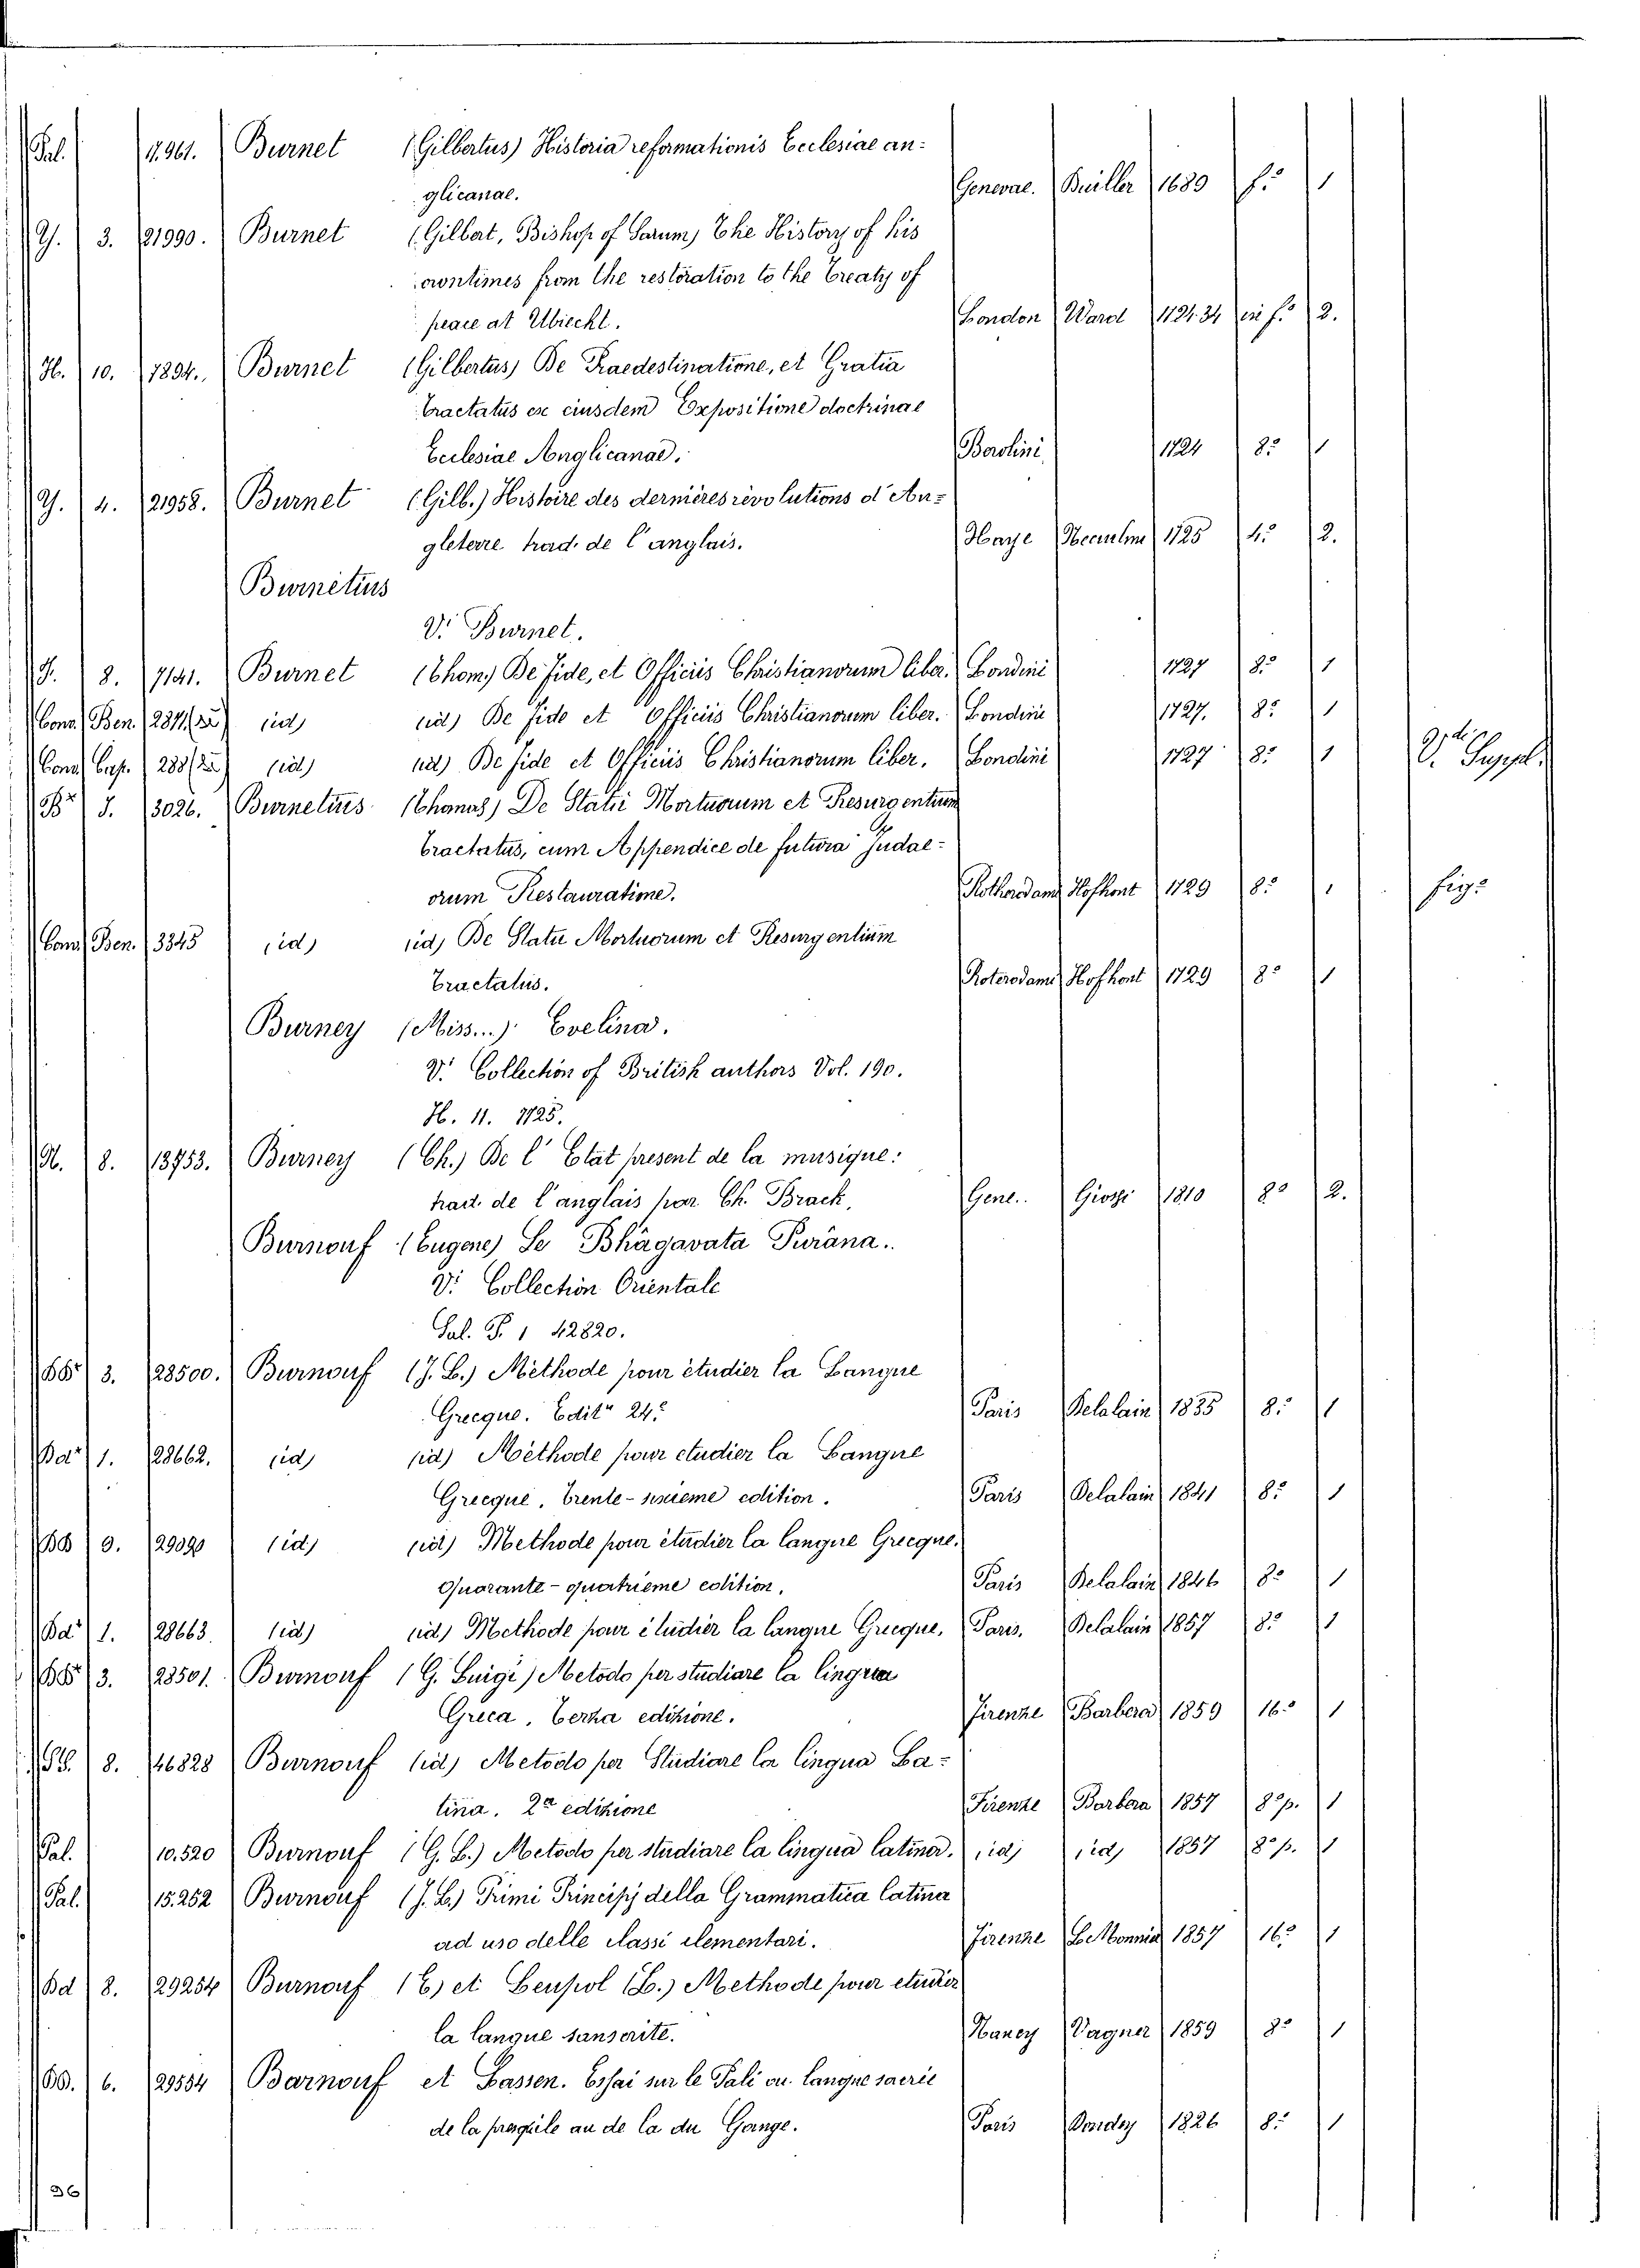 Pal. 11.961. Burnet (Gilbertus) Historia reformationis Ecclesiae an=
glicanae. Genevae. 1689 f.º 1
Y. 3. 21990. Burnet (Gilbert, Bishop of Sarum) The History of his
owntimes from the restoration to the Treaty of
peace at Utrecht. London Ward 1724.34 in f.º 2.
H. 10. 1894. Burnet (Gilbertus) De Praedestinatione, et Gratia
Tractatus ex eiusdem Expositione doctrinae
Ecclesiae Anglicanae. Berolini 1724 8.º 1
Y. 4. 21958. Burnet (Gilb.) Histoire des dernières révolutions d'An=
gleterre trad. de l'anglais. Haye 1725 4.º 2.
Burnetius
V. Burnet.
F. 8. 7141. Burnet (Thom) De fide, et Officiis Christianorum liber. Londini 1727 8.º 1
Cons. Ben. 2811(22) (id) (id) De fide et Officiis Christianorum liber. Londini 1727. 8.º 1
Cons. Cap. 288(22) (id) (id) De fide et Officiis Christianorum liber. Londini 1727 8.º 1 V. Suppl.
J. 3026. Burnetius (Thomas) De Statu Mortuorum et Resurgentium
Tractatus, cum Appendice de futura Judae=
orum Restauratione. Hofhout 1729 8.º 1 fig.
Cons. Ben. 3345 (id) (id) De Statu Mortuorum et Resurgentium
Tractatus. Roterodami Hofhout 1729 8.º 1
Burney (Miss...) Evelina.
V. Collection of British authors Vol. 190.
H. 11. 1125.
N. 8. 13753. Burney (Ch.) De l'Etat present de la musique:
trad. de l'anglais par Ch. Brack, Gene.. Giossi 1810 8.º 2.
Burnouf (Eugene) Le Bhâgavata Purâna..
V. Collection Orientale
Sal. F. 1 42820.
3. 28500. Burnouf (J. L.) Méthode pour étudier la Langue
Grecque. Edit.n 24.e Paris Delalain 1835 8.º 1
1. 28662. (id) (id) Méthode pour etudier la Langue
Grecque, trente-sixieme edition. Paris Delalain 1841 8.º 1
9. 29090 (id) (id) Methode pour étudier la langue Grecque.
Quarante-quatrieme edition. Paris Delalain 1846 8.º 1
1. 28663. (id) (id) Methode pour étudier la langue Grecque, Paris. Delalain 1857 8.º 1
3. 28501. Burnouf (G. Luigi) Metodo per studiare la lingua
Greca. Terza edizione. Firenze Barbera 1859 16.º 1
8. 46828 Burnouf (id) Metodo per Studiare la lingua La=
tina. 2.a edizione Firenze Barbera 1857 8.ºp. 1
Pal. 10.520 Burnouf (G. L.) Metodo per studiare la lingua latina. (id) (id) 1857 8.ºp. 1
Pal. 15.252 Burnouf (J. L.) Primi Principj della Grammatica latina
ad uso delle classi elementari. Firenze Le Monnier 1857 16.º 1
Bd 8. 29254 Burnouf (E) et Leupol (L.) Methode pour etudier
la langue sanscrite. Nancy Vagner 1859 8.º 1
6. 29534 Barnouf et Lassen. Essai sur le Pali ou langue sacrée
de la presqu'ile au de la du Gange. Paris Dondey 1826 8.º 1
36